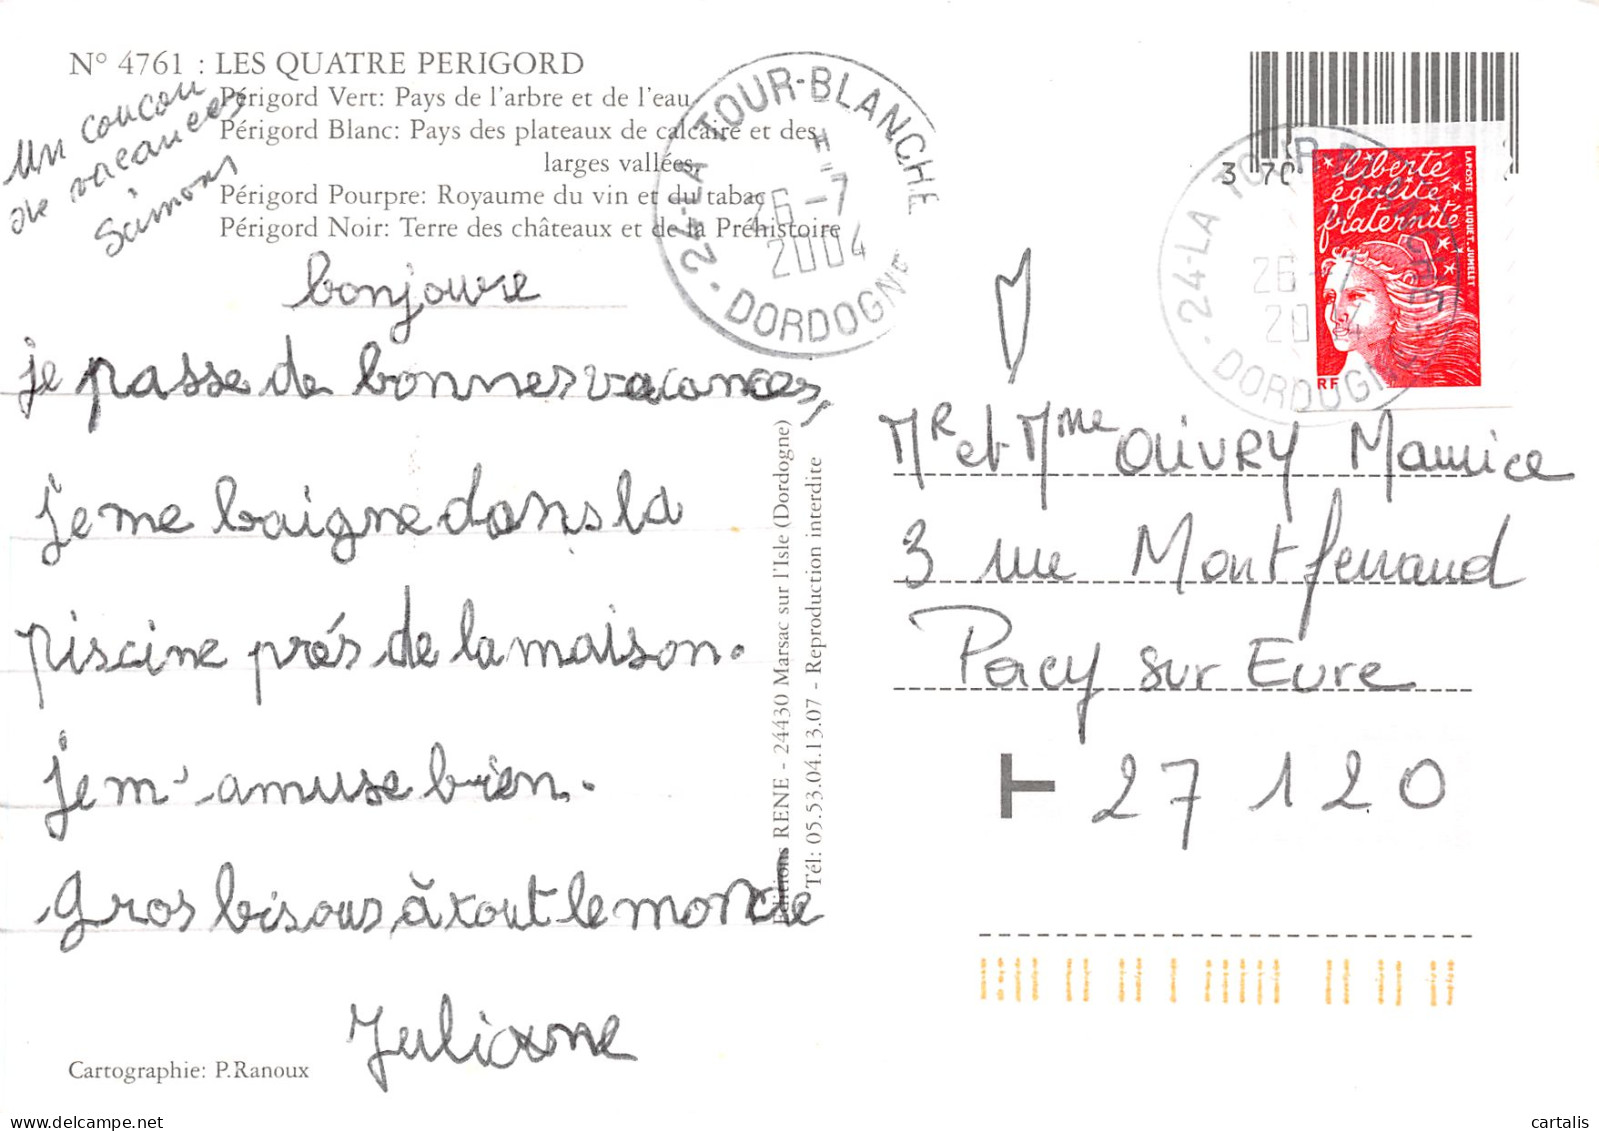 N° 4761 : LES QUATRE PERIGORD
Périgord Vert: Pays de l'arbre et de l'eau
Périgord Blanc: Pays des plateaux de calcaire et des
larges vallées.
Périgord Pourpre: Royaume du vin et du tabac
Périgord Noir: Terre des châteaux et de la Préhistoire
Un coucou
de vacances
Simone
bonjoure
je passe de bonnes vacances,
je me baigne dans la
piscine prés de la maison.
je m'amuse bien.
gros bisous à tout le monde
Juliane
Cartographie: P.Ranoux
Editions RENE - 24430 Marsac sur l'Isle (Dordogne)
Tél: 05.53.04.13.07 - Reproduction interdite
24-LA TOUR-BLANCHE
26-7
2004
DORDOGNE
3 70
24-LA TOUR
26-7
DORDOGNE
liberté
égalité
fraternité
LA POSTE LUQUET. JUMELET
RF
Mr et Mme OLIVRY Maurice
3 rue Montferraud
Pacy sur Eure
T 27 120
cartalis
delcampe.net